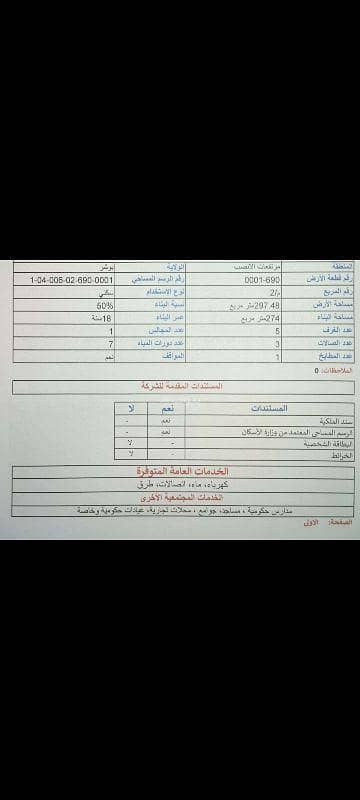 المنطقة مرتفعات الانصب الولاية بوشر
رقم قطعة الأرض 0001-690 رقم الرسم المساحي 1-04-006-02-690-0001
رقم المربع م/2 نوع الإستخدام سكني
مساحة الأرض 297.48متر مربع نسبة البناء 50%
مساحة البناء 274متر مربع عمر البناء 18سنة
عدد الغرف 5 عدد المجالس 1
عدد الصالات 3 عدد دورات المياه 7
عدد المطابخ 1 المواقف نعم
الملاحظات: 0
المستندات المقدمة للشركة
المستندات نعم لا
سند الملكية نعم -
الرسم المساحي المعتمد من وزارة الأسكان نعم -
البطاقة الشخصية - لا
الخرائط لا
الخدمات العامة المتوفرة
كهرباء، ماء، اتصالات، طرق
الخدمات المجتمعية الأخرى
مدارس حكومية ، مساجد، جوامع ، محلات تجارية، عيادات حكومية وخاصة
الصفحة: الاول